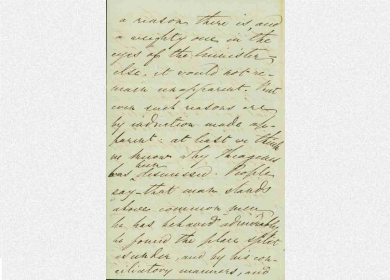 a reason there is and
a weighty one in the
eyes of the minister
else, it would not re-
main unapparent. But
even such reasons are
by induction made ap-
parent: at least we think
we know why
has been dismissed. People
say that man stands
above common men
he has behaved admirably
he found the place split
asunder, and by his con-
ciliatory manners, and